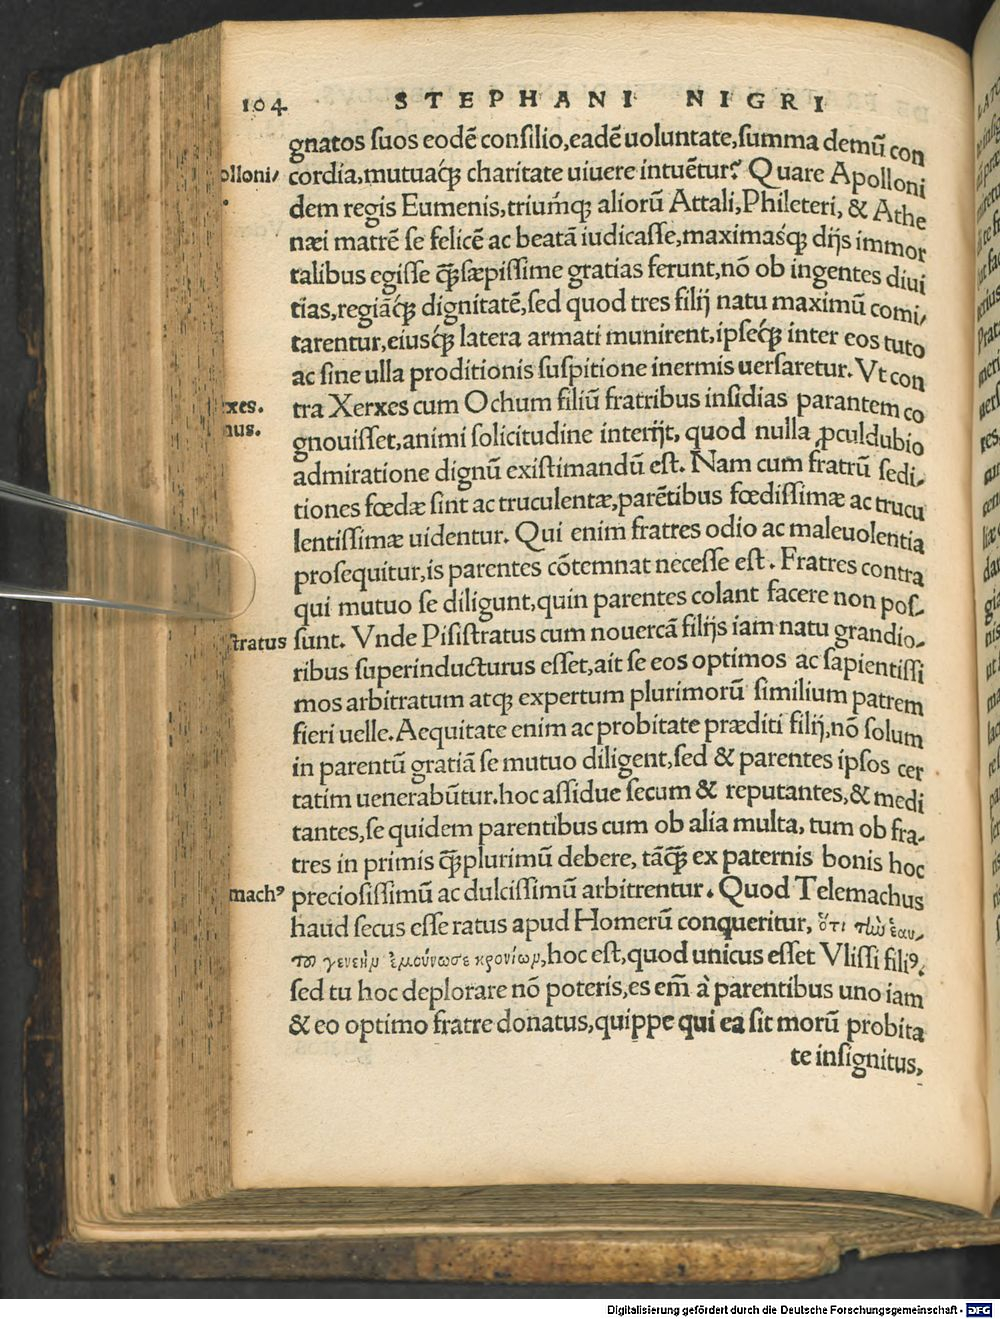 104 STEPHANI NIGRI
gnatos suos eodē consilio,eadē uoluntate,summa demū con
olloni/ cordia,mutuaq́ꝫ charitate uiuere intuētur? Quare Apolloni
dem regis Eumenis,triumq́ꝫ aliorū Attali,Phileteri, & Athe
næi matrē se felicē ac beatā iudicasse,maximasq́ꝫ dijs immor
talibus egisse q̄ꝫsæpissime gratias ferunt,nō ob ingentes diui
tias,regiāq́ꝫ dignitatē,sed quod tres filij natu maximū comi/
tarentur,eiusq́ꝫ latera armati munirent,ipseq́ꝫ inter eos tuto
ac sine ulla proditionis suspitione inermis uersaretur. Vt con
xes. tra Xerxes cum Ochum filiū fratribus insidias parantem co
nus. gnouisset,animi solicitudine interijt, quod nulla ꝓculdubio
admiratione dignū existimandū est. Nam cum fratrū sedi/
tiones fœdæ sint ac truculentæ,parētibus fœdissimæ ac trucu
lentissimæ uidentur. Qui enim fratres odio ac maleuolentia
prosequitur,is parentes cōtemnat necesse est. Fratres contra
qui mutuo se diligunt,quin parentes colant facere non pos/
stratus sunt. Vnde Pisistratus cum nouercā filijs iam natu grandio/
ribus superinducturus esset,ait se eos optimos ac sapientissi
mos arbitratum atqꝫ expertum plurimorū similium patrem
fieri uelle.Aequitate enim ac probitate præditi filij,nō solum
in parentū gratiā se mutuo diligent,sed & parentes ipsos cer
tatim uenerabūtur.hoc assidue secum & reputantes,& medi
tantes,se quidem parentibus cum ob alia multa, tum ob fra/
tres in primis q̄ꝫplurimū debere, tāq̄ꝫ ex paternis bonis hoc
machꝰ preciosissimū ac dulcissimū arbitrentur. Quod Telemachus
haud secus esse ratus apud Homerū conqueritur, ὅτι τὼ ἑαυ/
του γενεὴν ἐμούνωσε κρονίων,hoc est,quod unicus esset Vlissi filiꝰ.
sed tu hoc deplorare nō poteris,es em̄ à parentibus uno iam
& eo optimo fratre donatus,quippe qui ea sit morū probita
te insignitus,
Digitalisierung gefördert durch die Deutsche Forschungsgemeinschaft - DFG